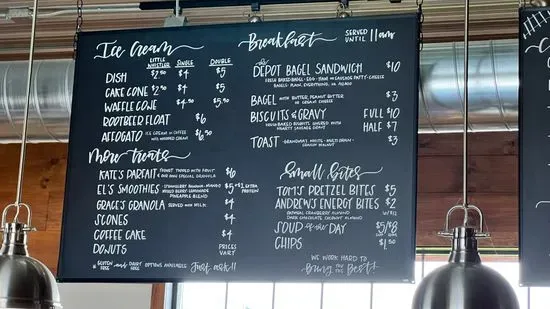 Ice Cream
LITTLE WHISTLER SINGLE DOUBLE
DISH $2.50 $4 $5
CAKE CONE $2.50 $4 $5
WAFFLE CONE $4.50 $5.50
ROOTBEER FLOAT $6
AFFOGATO ICE CREAM W/ COFFEE $6.50
WITH WHIPPED CREAM
More treats
KATE'S PARFAIT YOGURT TOPPED WITH FRUIT $6
AND OUR SPECIAL GRANOLA
EL'S SMOOTHIES STRAWBERRY BANANA MANGO $5 +$1 EXTRA PROTEIN
MIXED BERRY LEMONADE
PINEAPPLE BLEND
GRACE'S GRANOLA SERVED WITH MILK $4
SCONES $4
COFFEE CAKE $4
DONUTS PRICES VARY
* GLUTEN and DAIRY FREE OPTIONS AVAILABLE Just ask!!
Breakfast SERVED UNTIL 11am
the DEPOT BAGEL SANDWICH $10
FRESH BAKED BAGEL - EGG - HAM OR SAUSAGE PATTY - CHEESE
BAGELS: PLAIN, EVERYTHING, OR ASIAGO
BAGEL WITH BUTTER, PEANUT BUTTER $3
OR CREAM CHEESE
BISCUITS & GRAVY FULL $10
FRESH BAKED BISCUITS COVERED WITH HALF $7
HEARTY SAUSAGE GRAVY
TOAST GRANDMA'S WHITE - MULTI GRAIN - $3
Small bites
TOM'S PRETZEL BITES $5
ANDREW'S ENERGY BITES $2
OATMEAL CRANBERRY ALMOND
DARK CHOCOLATE COCONUT ALMOND
SOUP of the DAY $5/$8
CHIPS $1.50
WE WORK HARD TO
Bring you the Best!